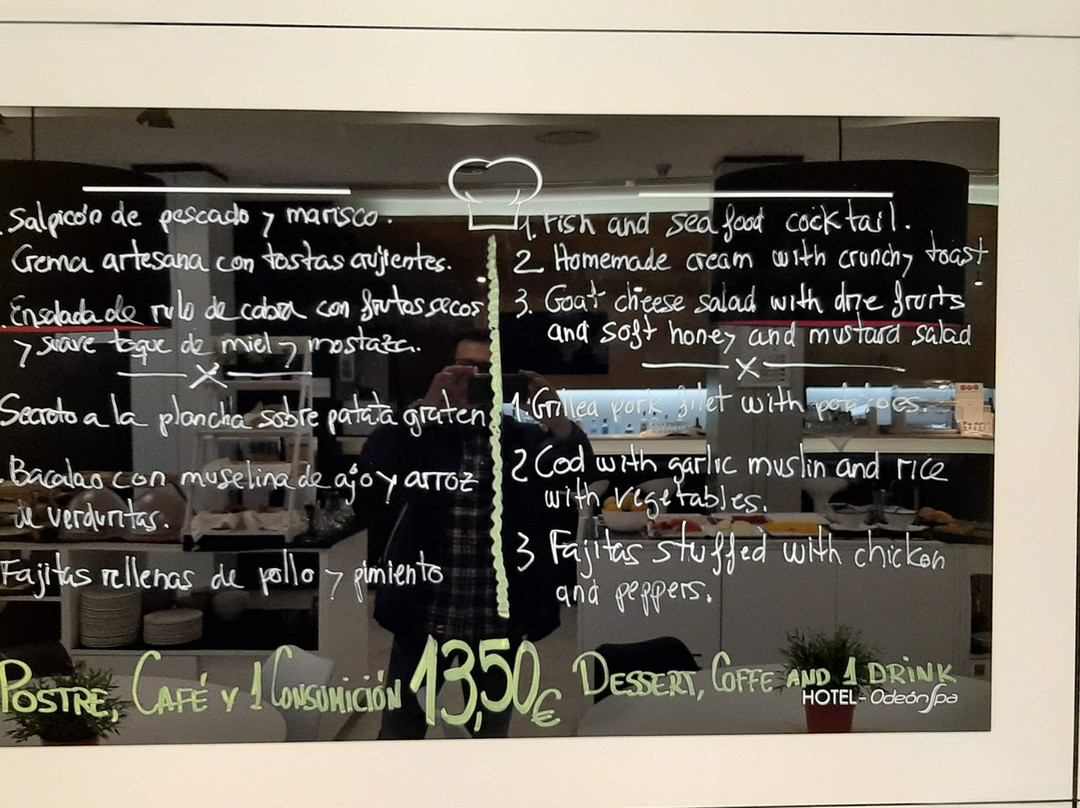 Salpicón de pescado y marisco.
Crema artesana con tostas crujientes.
Ensalada de rulo de cabra con frutos secos
y suave toque de miel y mostaza.
Secreto a la plancha sobre patata graten
Bacalao con muselina de ajo y arroz
de verduritas.
Fajitas rellenas de pollo y pimiento
1. Fish and sea food cocktail.
2 Homemade cream with crunchy toast
3. Goat cheese salad with drie fruits
and soft honey and mustard salad
1. Grilled pork filet with potatoes.
2 Cod with garlic muslin and rice
with vegetables.
3 Fajitas stuffed with chicken
and peppers.
POSTRE, CAFÉ Y 1 CONSUMICIÓN 13,50€ DESSERT, COFFE AND 1 DRINK
HOTEL-OdeónSpa